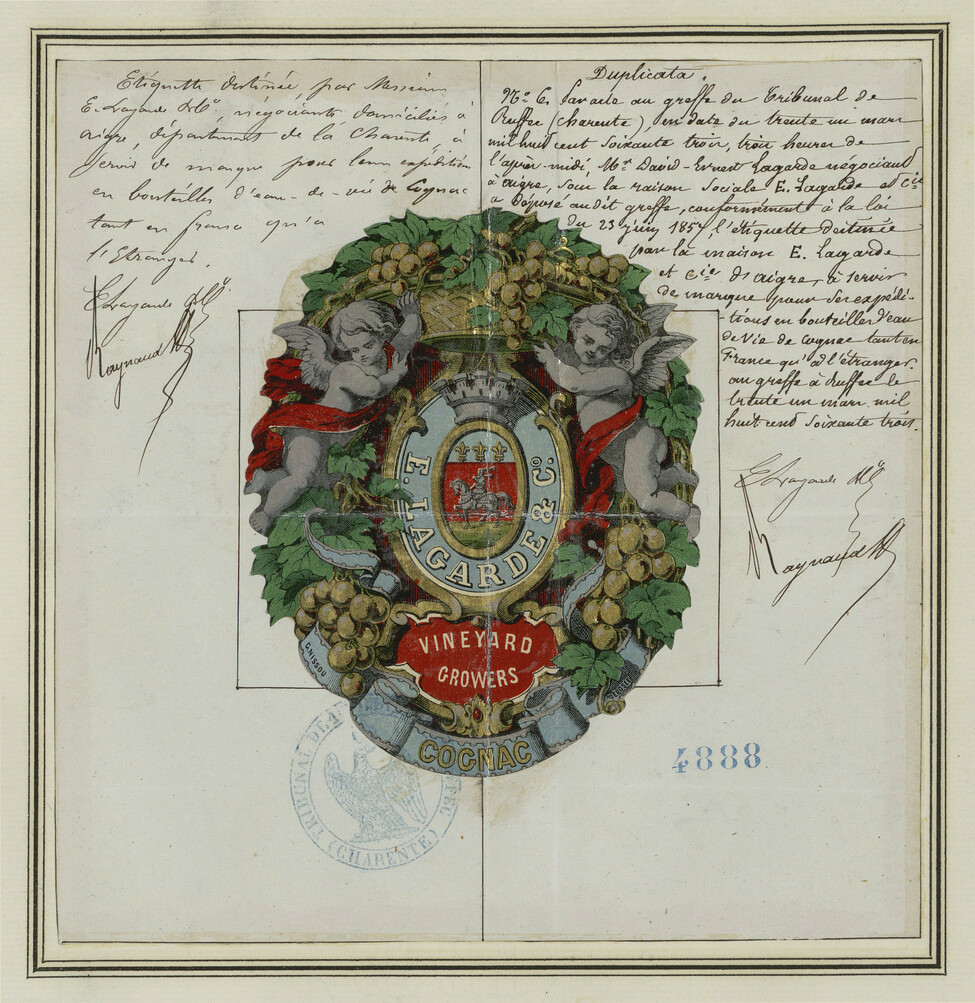 Etiquette destinée, par Messieurs
E. Lagarde & Cie, négociants, domiciliés à
aigre, département de la Charente, à
servir de marque pour leurs expéditions
en bouteilles d'eau-de-vie de Cognac
tant en france qu'à
l'Etranger.
E. Lagarde & Cie
Raynaud
Duplicata.
No 6. Savate au greffe du Tribunal de
Ruffec (Charente), en date du trente un mars
mil huit cent soixante trois, trois heures de
l'après-midi, Mr David-Ernest Lagarde négociant
à aigre, sous la raison sociale E. Lagarde et Cie
a déposé au dit greffe, conformément à la loi
du 23 juin 1857, l'étiquette destinée
par la maison E. Lagarde
et Cie d'aigre, à servir
de marque pour ses expédi-
tions en bouteilles d'eau
de vie de Cognac tant en
France qu'à l'étranger.
au greffe à Ruffec le
trente un mars mil
huit cent soixante trois.
E. Lagarde & Cie
Raynaud
E. LAGARDE & Co.
VINEYARD
GROWERS
G. NISSOU
COGNAC
TRIBUNAL DE
(CHARENTE)
4888